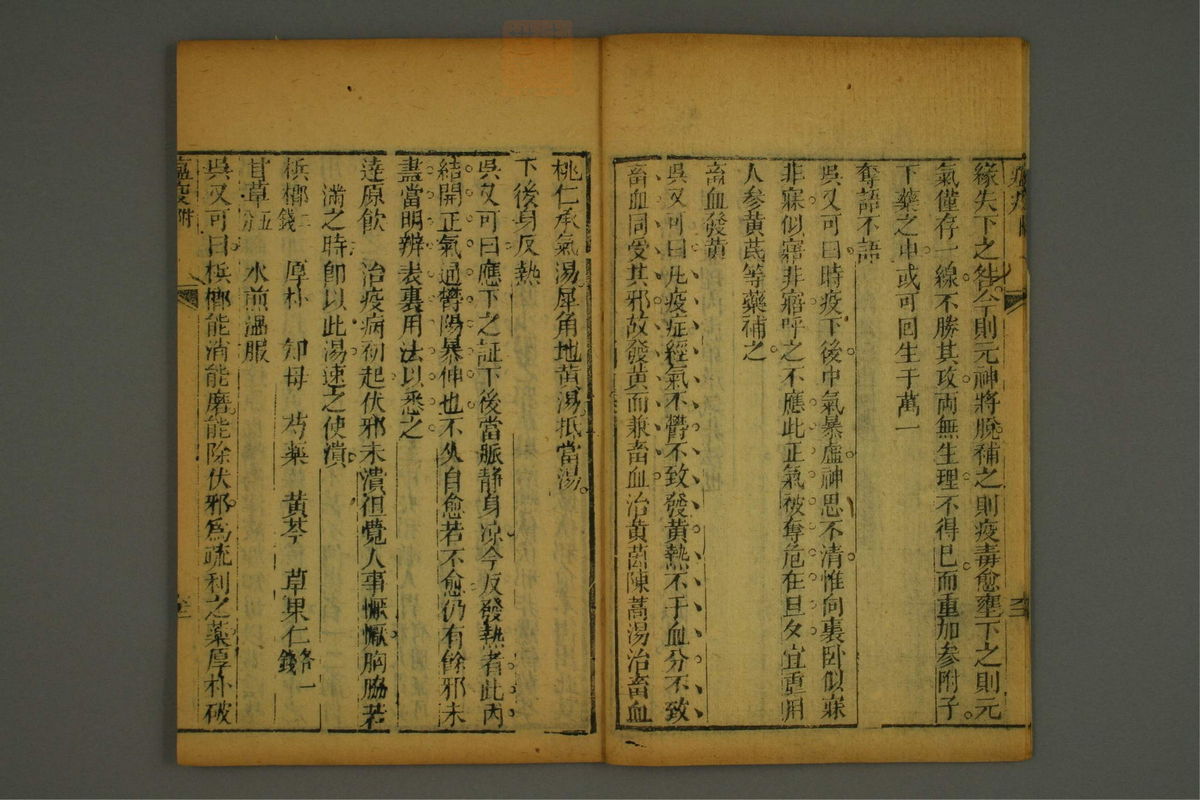 緣失下之咎今則元神將脫補之則疫毒愈壅下之則元
氣僅存一線不勝其攻兩無生理不得已而重加參附子
下藥之中或可回生于萬一
奪語不語
吳又可曰時疫下後中氣暴虛神思不清惟向裏卧似寐
非寐似寤非寤呼之不應此正氣被奪危在旦夕宜重用
人參黃芪等藥補之
畜血發黃
吳又可曰凡疫症經氣不鬱不致發黃熱不于血分不致
畜血同受其邪故發黃而兼畜血治黃茵陳蒿湯治畜血
桃仁承氣湯犀角地黃湯抵當湯
下後身反熱
吳又可曰應下之証下後當脈靜身凉今反發熱者此內
結開正氣通鬱陽暴伸也不久自愈若不愈仍有餘邪未
盡當明辨表裏用法以悉之
達原飲 治疫病初起伏邪未潰徂覺人事懨懨胸脇若
滿之時卽以此湯速之使潰
檳榔二錢 厚朴 知母 芍藥 黃芩 草果仁各一錢
甘草五分 水煎溫服
吳又可曰檳榔能消能磨能除伏邪爲疏利之藥厚朴破
瘟疫附